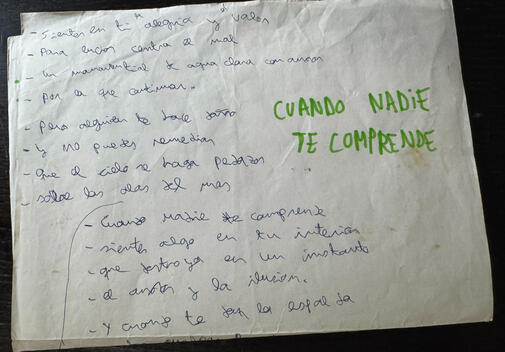 - Sientes en ti la alegria y el valor
- Para luchar contra el mal
- Un manantial de agua clara con amor
- Por la que caminar.
- Pero alguien te hace daño
- Y no puedes remediar
- Que el cielo se haga pedazos
- sobre las olas del mar
CUANDO NADIE
TE COMPRENDE
- Cuando Nadie te comprende
- sientes algo en tu interior
- que destroya en un instante
- el amor y la ilusion.
- Y cuando te dan la espalda